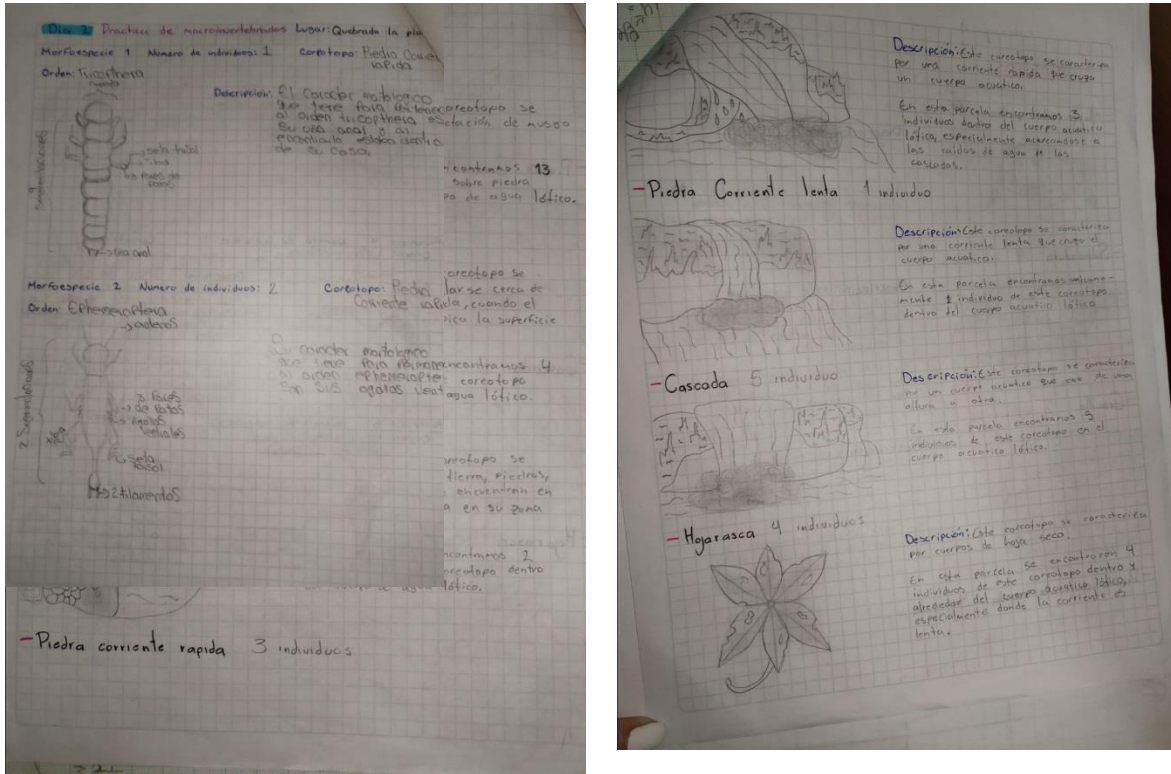 Dia 2 Practica de macroinvertebrados Lugar: Quebrada la pla
Morfoespecie 1 Número de individuos: 1 Coreotopo: Piedra Corrien
rapida
Orden: Tricopthera
Descripción: El Caracter morfologico
que tiene para
al orden tricopthera es
su uña anal y al
encontrarlo estaba dentro
de su casa.
coreotopo se
etación de musgo
ncontramos 13
sobre piedra
po de agua lótico.
9 Segmentaciones
3 Pares de
Patas
→ uña anal
oreotopo se
lar se cerca de
, cuando el
ica la superficie
encontramos 4
coreotopo
agua lótico.
Morfoespecie 2 Número de individuos: 2 Coreotopo: Piedra
Corriente rapida
Orden: Ephemeroptera
→ antenas
Su caracter morfologico
que tiene para
al orden ephemeropter
Sp. sus agallas vent
3 Pares
→ de Patas
→ Agallas
ventrales
→ 2 filamentos
reotopo se
tierra, piedras,
encuentran en
a en su zona
ncontramos 2
oreotopo dentro
lótico.
- Piedra corriente rapida 3 individuos
Descripción: Este coreotopo se caracteriza
por una corriente rapida que cruza
un cuerpo acuatico.
En esta parcela encontramos 3
individuos dentro del cuerpo acuatico
lótico, especialmente acercandose a
las caidas de agua de las
cascadas.
- Piedra Corriente lenta 1 individuo
Descripción: Este coreotopo se caracteriza
por una corriente lenta que cruza el
cuerpo acuatico.
En esta parcela encontramos unicamente
mente 1 individuo de este coreotopo
dentro del cuerpo acuatico lótico
- Cascada 5 individuo
Descripción: Este coreotopo se caracteriza
por un cuerpo acuatico que cae de una
altura a otra.
En esta parcela encontramos 5
individuos de este coreotopo en el
cuerpo acuatico lótico.
- Hojarasca 4 individuos
Descripción: Este coreotopo se caracteriza
por cuerpos de hoja seca.
En esta parcela se encontraron 4
individuos de este coreotopo dentro y
alrededor del cuerpo acuatico lótico,
especialmente donde la corriente es
lenta.